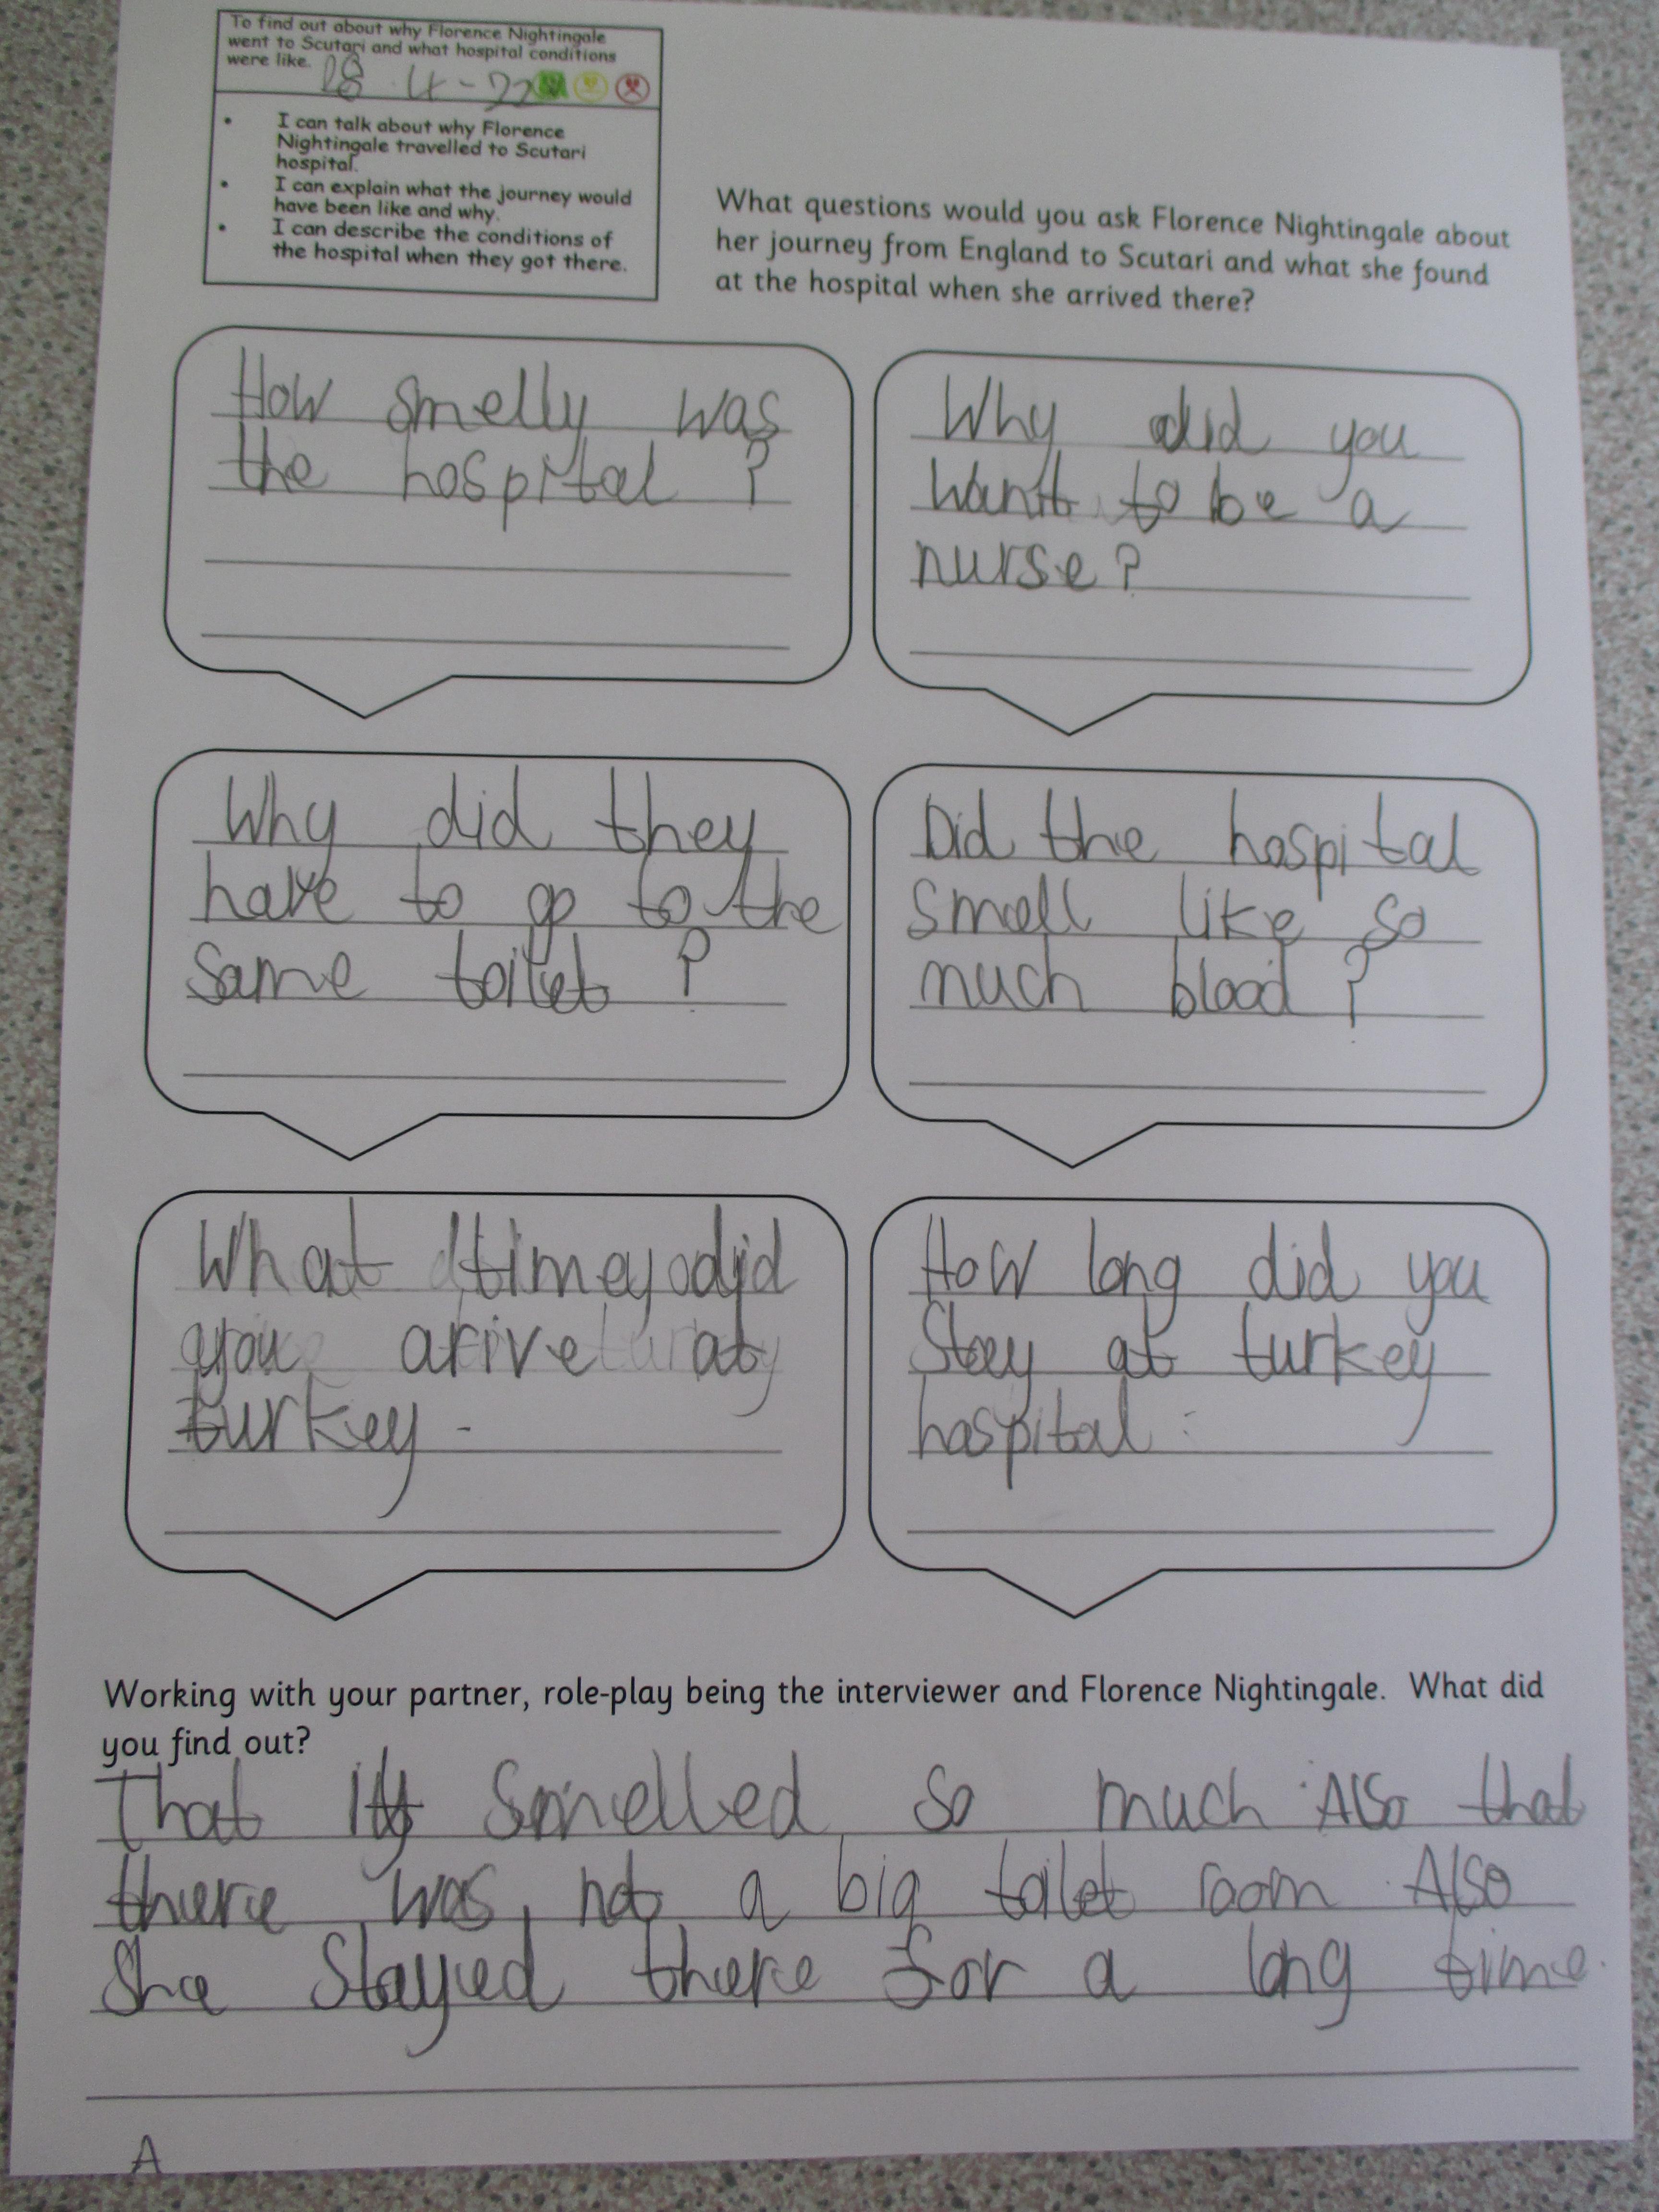 To find out about why Florence Nightingale
went to Scutari and what hospital conditions
were like.
28 · 4 - 22
• I can talk about why Florence
Nightingale travelled to Scutari
hospital.
• I can explain what the journey would
have been like and why.
• I can describe the conditions of
the hospital when they got there.
What questions would you ask Florence Nightingale about
her journey from England to Scutari and what she found
at the hospital when she arrived there?
How smelly was
the hospital ?
Why did you
want to be a
nurse?
Why did they
have to go to the
same toilet ?
Did the hospital
smell like so
much blood ?
What time did
you arive at
turkey -
How long did you
Stay at turkey
hospital :
Working with your partner, role-play being the interviewer and Florence Nightingale. What did
you find out?
That it Smelled so much Also that
there was not a big toilet room Also
She Stayed there for a long time.
A